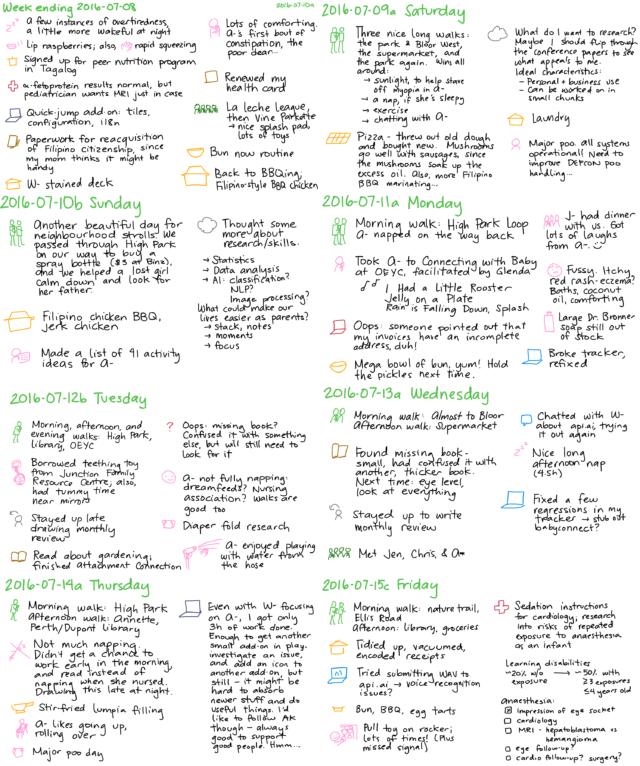 Week ending 2016-07-08
2016-07-10a
A few instances of overtiredness,
a little more wakeful at night
Lip raspberries; also, rapid squeezing
Signed up for peer nutrition program
in Tagalog
α-fetoprotein results normal, but
pediatrician wants MRI just in case
Quick-jump add-on: tiles,
configuration, i18n
Paperwork for reacquisition
of Filipino citizenship, since
my mom thinks it might be
handy
W- stained deck
Lots of comforting.
A-'s first bout of
constipation, the
poor dear...
Renewed my
health card
La leche league,
then Vine Parkette
→ nice splash pad,
lots of toys
Bun now routine
Back to BBQing;
Filipino-style BBQ chicken
2016-07-09a Saturday
Three nice long walks:
the park & Bloor West,
the supermarket, and
the park again. Win all
around:
→ sunlight, to help stave
off myopia in A-
→ a nap, if she's sleepy
→ exercise
→ chatting with A-
Pizza - threw out old dough
and bought new. Mushrooms
go well with sausages, since
the mushrooms soak up the
excess oil. Also, more Filipino
BBQ marinating...
What do I want to research?
Maybe I should flip through
the conference papers to see
what appeals to me.
Ideal characteristics:
- Personal + business use
- Can be worked on in
small chunks
Laundry
Major poo. All systems
operational! Need to
improve DEFCON poo
handling...
2016-07-10b Sunday
Another beautiful day for
neighbourhood strolls. We
passed through High Park
on our way to buy a
spray bottle ($5 at Binz),
and we helped a lost girl
calm down and look for
her father.
Filipino chicken BBQ,
jerk chicken
Made a list of 41 activity
ideas for A-
Thought some
more about
research/skills.
→ Statistics
→ Data analysis
→ AI: classification?
NLP?
Image processing?
What could make our
lives easier as parents?
→ Stack, notes
→ moments
→ focus
2016-07-11a Monday
Morning walk: High Park Loop
A- napped on the way back
Took A- to Connecting with Baby
at OEYC, facilitated by Glenda
I Had a Little Rooster
Jelly on a Plate
Rain is Falling Down, Splash
Oops: someone pointed out that
my invoices have an incomplete
address, duh!
Mega bowl of bun, yum! Hold
the pickles next time.
J- had dinner
with us. Got
lots of laughs
from A-. :)
Fussy. Itchy
red rash-eczema?
Baths, coconut
oil, comforting
Large Dr. Bronner
soap still out
of stock
Broke tracker,
refixed
2016-07-12b Tuesday
Morning, afternoon, and
evening walks: High Park,
library, OEYC
Borrowed teething toy
from Junction Family
Resource Centre; also,
had tummy time
near mirrors
Stayed up late
drawing monthly
review
Read about gardening;
finished Attachment Connection
? Oops: missing book?
Confused it with something
else, but will still need to
look for it
A- not fully napping:
dreamfeeds? Nursing
association? Walks are
good too
Diaper fold research
A- enjoyed playing
with water from
the hose
2016-07-13a Wednesday
Morning walk: Almost to Bloor
Afternoon walk: Supermarket
Found missing book -
small, had confused it with
another, thicker book.
Next time: eye level,
look at everything
Stayed up to write
monthly review
Met Jen, Chris, & A-
Chatted with W-
about api.ai; trying
it out again
Nice long
afternoon nap
(4.5h)
Fixed a few
regressions in my
tracker → stub out
babyconnect?
2016-07-14a Thursday
Morning walk: High Park
Afternoon walk: Annette,
Perth/Dupont Library
Not much napping.
Didn't get a chance to
work early in the morning,
and read instead of
napping when she nursed.
Drawing this late at night.
Stir-fried lumpia filling
A- likes going up,
rolling over
Major poo day
Even with W- focusing
on A-, I got only
3h of work done.
Enough to get another
small add-on in play,
investigate an issue,
and add an icon to
another add-on, but
still - it might be
hard to absorb
newer stuff and do
useful things. I'd
like to follow AK
though - always
good to support
good people. Hmm...
2016-07-15c Friday
Morning walk: nature trail,
Ellis Road
Afternoon: library, groceries
Tidied up, vacuumed,
encoded receipts
Tried submitting WAV to
api.ai → voice-recognition
issues?
Bun, BBQ, egg tarts
Pull toy on rocker;
lots of times! (Plus
missed signal)
Sedation instructions
for cardiology, research
into risks of repeated
exposure to anaesthesia
as an infant
Learning disabilities
~20% w/o → ~50% with
exposure ≥3 exposures
≤4 years old
anaesthesia:
impression of eye socket
cardiology
MRI - hepatoblastoma vs
hemangioma
eye follow-up?
cardio follow-up? surgery?